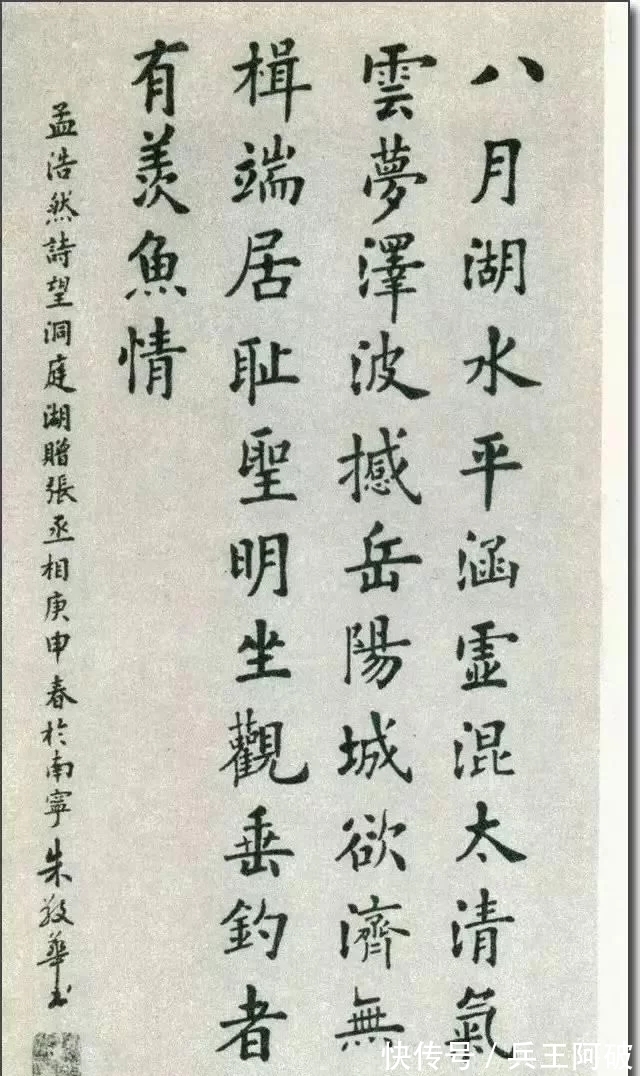 八月湖水平涵虛混太清氣
雲夢澤波撼岳陽城欲濟無
楫端居耻聖明坐觀垂釣者
有羨魚情
孟浩然詩望洞庭湖贈張丞相庚申春於南寧朱敬華书
快传号/兵王阿破